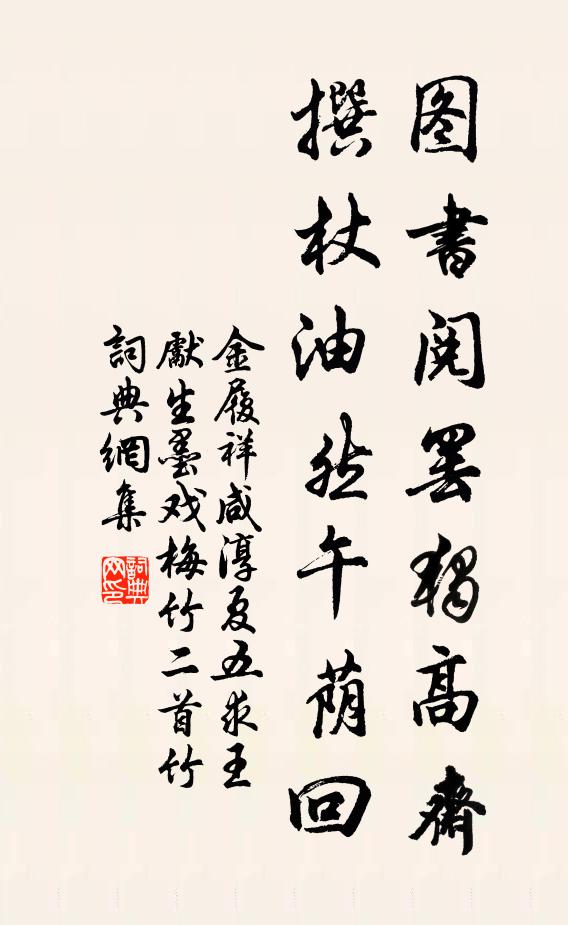 图書阅罢独高齋
撰杖油然午荫回
金履祥咸淳夏五求王
獻生墨戏梅竹二首竹
詞典網集
詞典网印